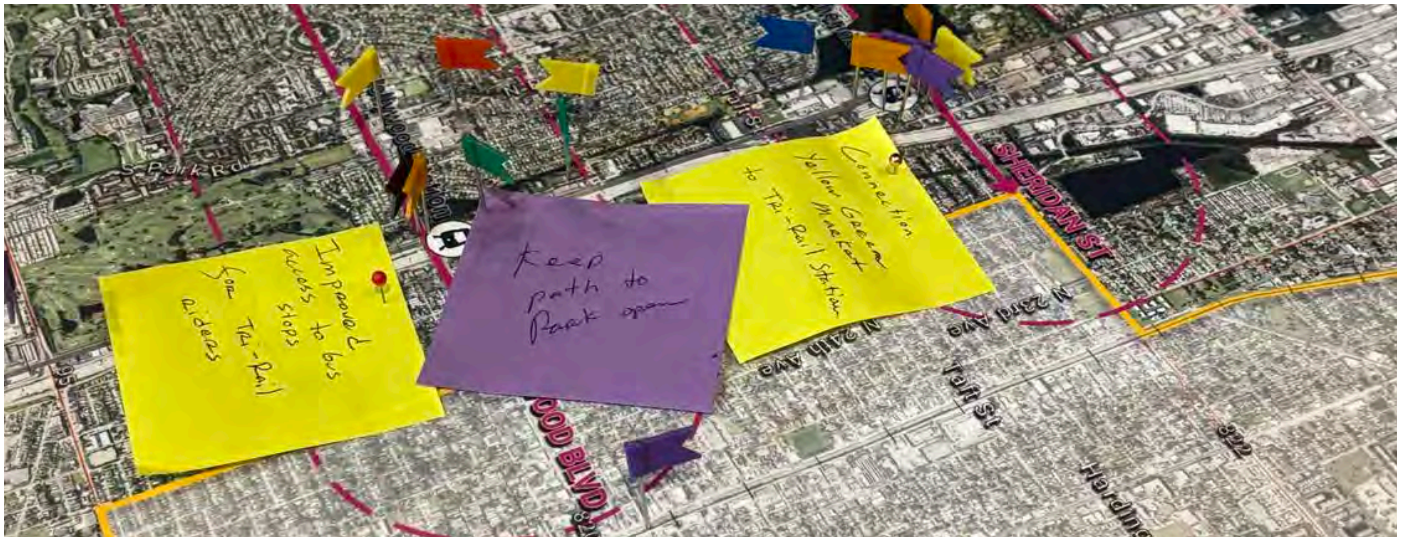 Improved
Access to bus
stops
for Tri-Rail
riders
Keep
path to
Park open
Connection
Yellow Green
Market
to Tri-Rail Station
S Park Rd
Taft St
SHERIDAN ST
N 24th Ave
N 23rd Ave
Taft St
OOD BLVD
822
Harding
95